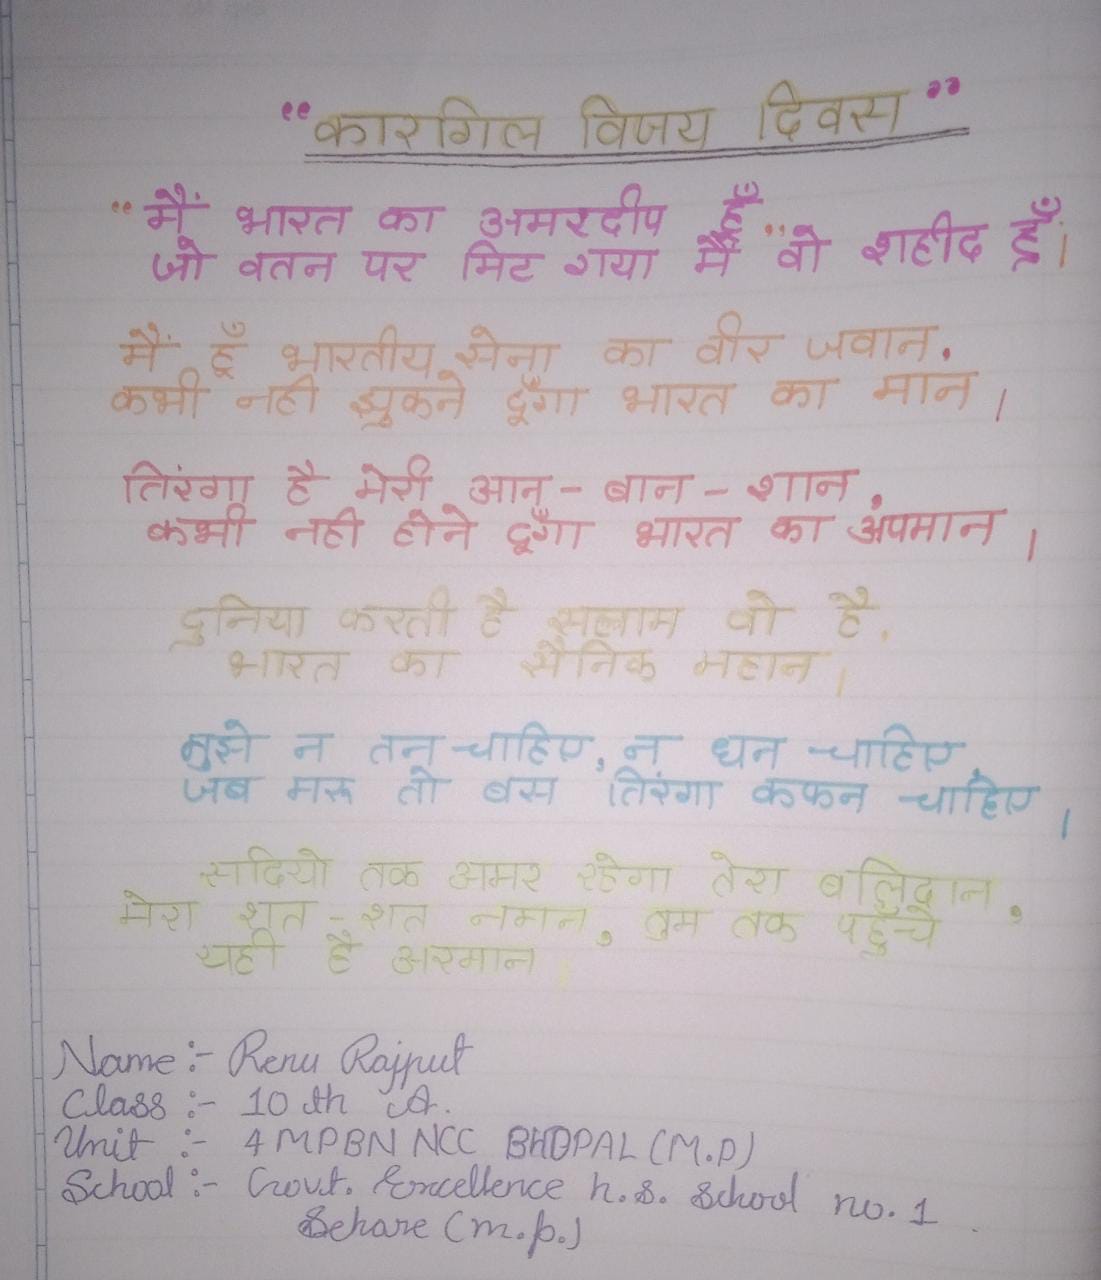 "कारगिल विजय दिवस"
"मैं भारत का अमरदीप हूँ
जो वतन पर मिट गया मैं "वो शहीद हूँ।
मैं हूँ भारतीय सेना का वीर जवान,
कभी नही झुकने दूँगा भारत का मान।
तिरंगा है मेरी आन-बान-शान,
कभी नही होने दूँगा भारत का अपमान।
दुनिया करती है सलाम वो है,
भारत का सैनिक महान।
मुझे न तन चाहिए, न धन चाहिए,
जब मरू तो बस तिरंगा कफन चाहिए।
सदियो तक अमर रहेगा तेरा बलिदान,
मेरा शत-शत नमन, तुम तक पहुँचे
यही है अरमान।
Name :- Renu Rajput
Class :- 10 th A.
Unit :- 4 MPBN NCC BHOPAL (M.P)
School :- Govt. Excellence h.s. School no. 1
Sehore (m.p.)